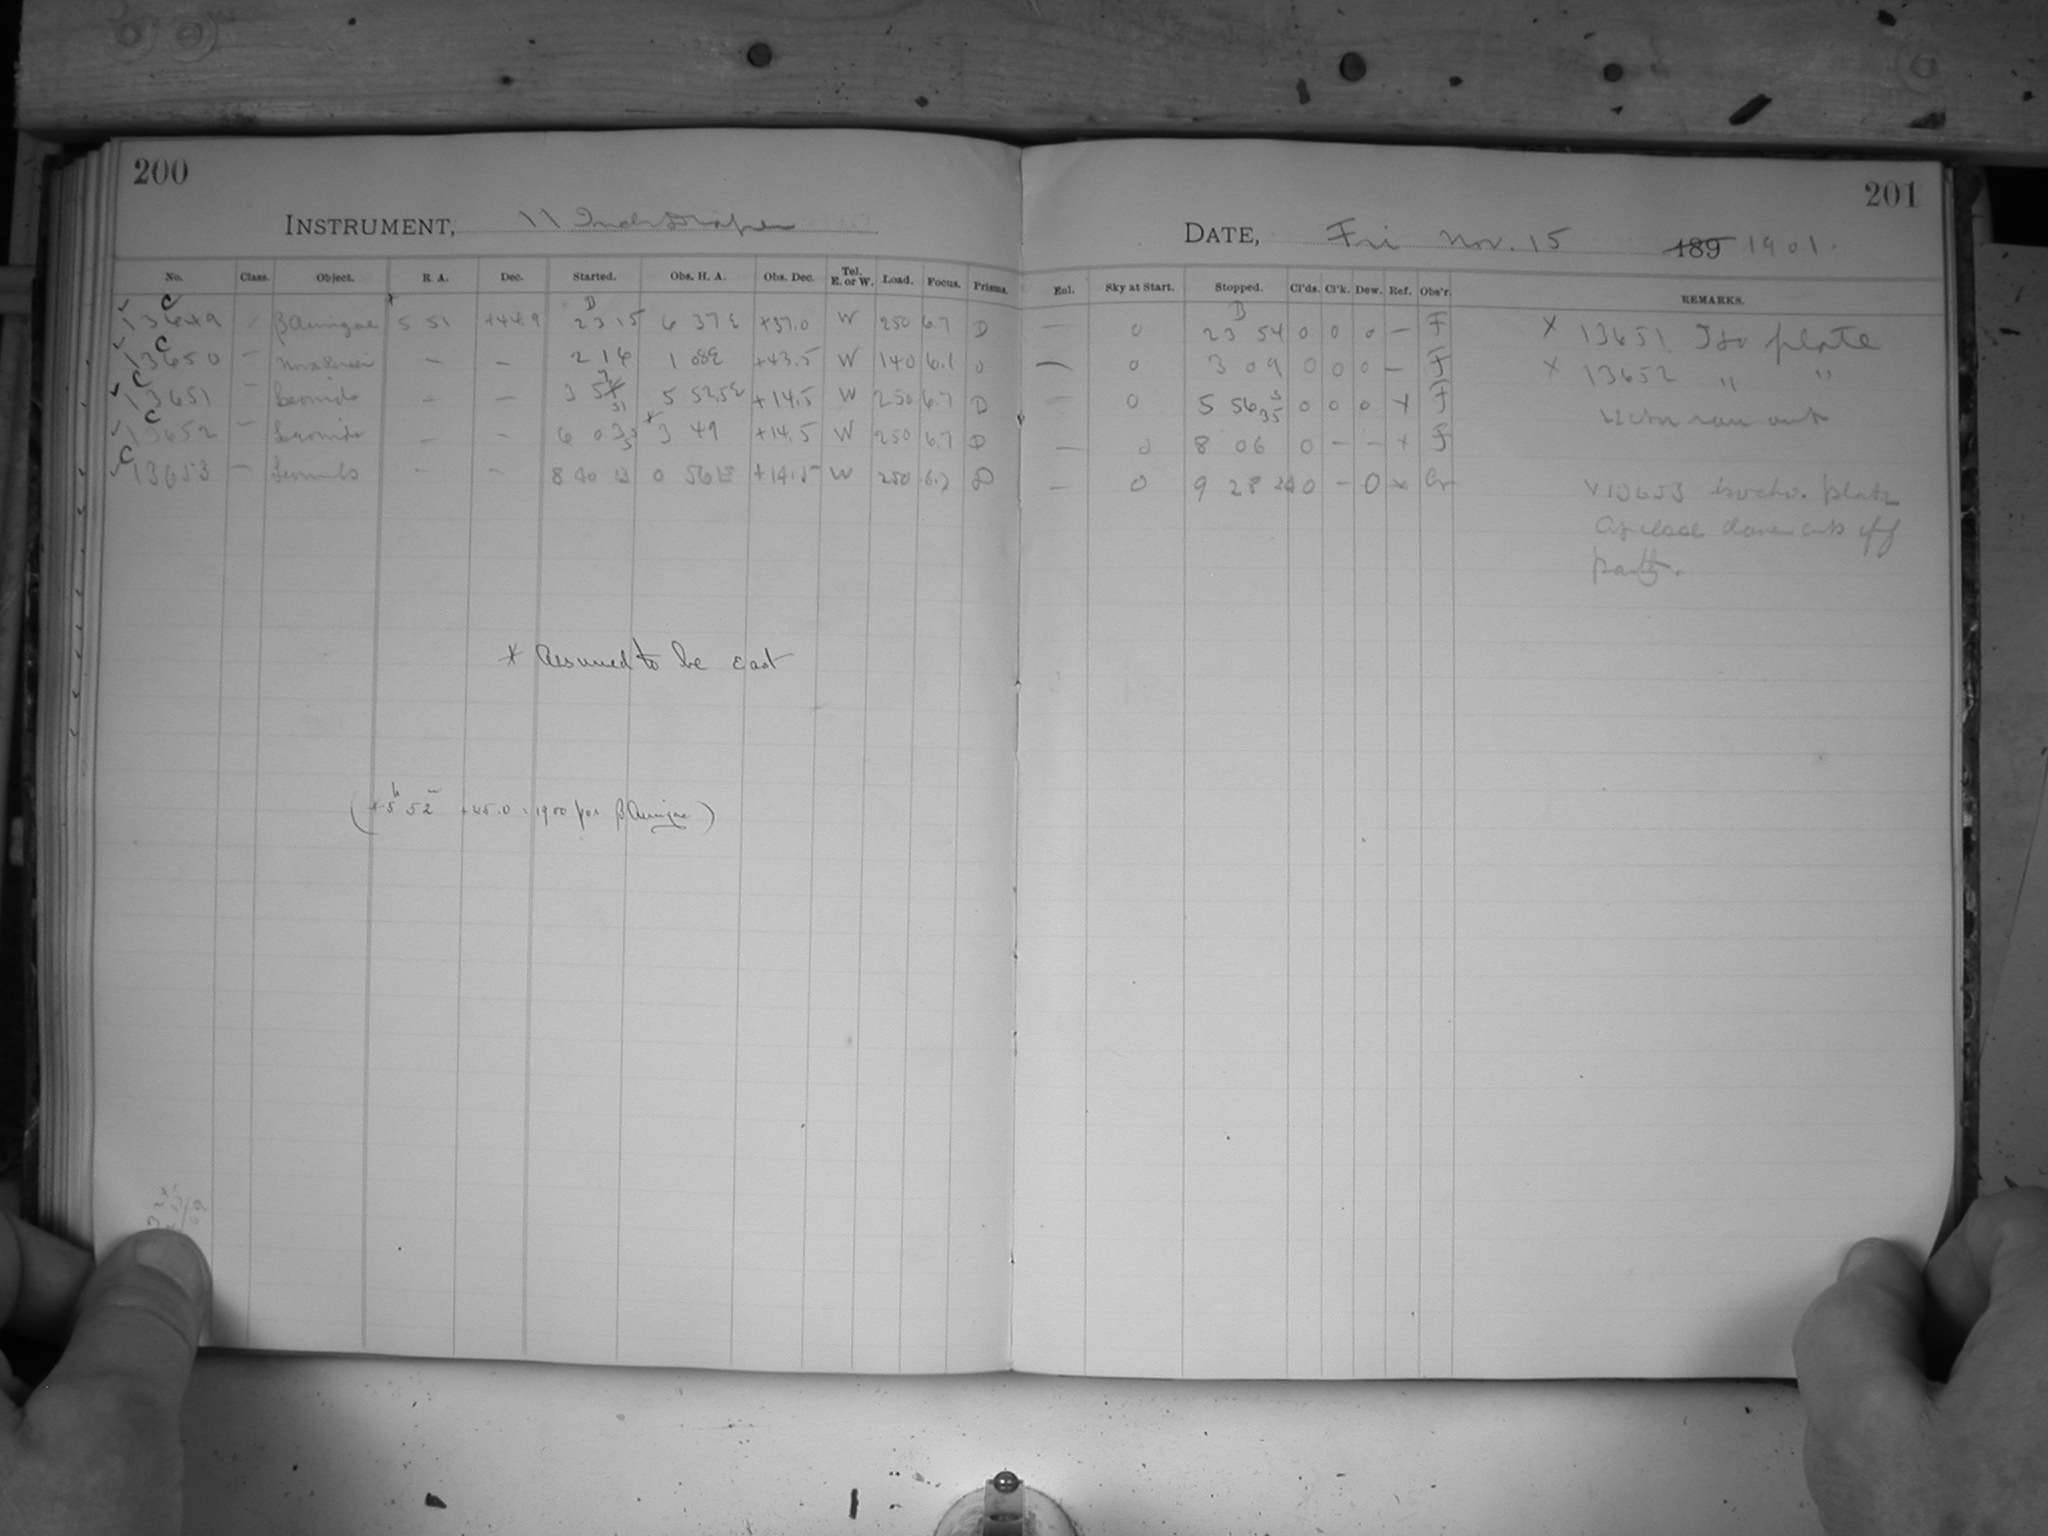 200
INSTRUMENT, 11 Inch Draper
No. Class. Object. R A. Dec. Started. Obs. H. A. Obs. Dec. Tel. E. or W. Load. Focus. Prisms.
13649 β Aurigae 5 51 +44.9 D 23 15 6 37 E +37.0 W 250 6.7 D
13650 — Nova Persei — — 2 14 1 08 E +43.5 W 140 6.1 0
13651 — Leonids — — 3 51 5 52.5 E +14.5 W 250 6.7 D
13652 — Leonids — — 6 03 * 3 49 +14.5 W 250 6.7 D
13653 — Leonids — — 8 40 13 0 56 E +14.5 W 250 6.7 D
* Assumed to be east
(* 5h 52m +45.0 : 1900 for β Aurigae)
201
DATE, Fri Nov. 15 189 1901.
Enl. Sky at Start. Stopped. Cl'ds. Cl'k. Dew. Ref. Obs'r. REMARKS.
— 0 D 23 54 0 0 0 — F X 13651 Iso plate
— 0 3 09 0 0 0 — F X 13652 " "
— 0 5 56 35 0 0 0 x F ran out
— 0 8 06 0 — — x F
— 0 9 28 24 0 — 0 x 13653 isochro. plate
close dome cuts off
partly.